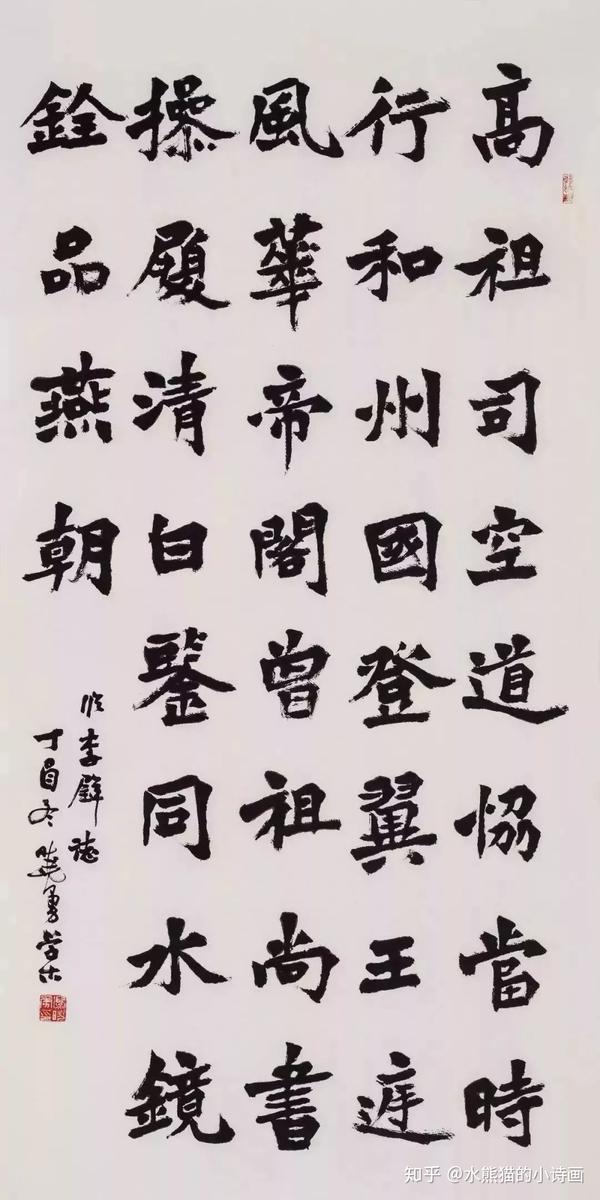 高祖司空道協當時
行和州國登翼王遅
風華帝閣曾祖尚書
操履清白鑒同水鏡
銓品燕朝
临李璧誌
丁酉冬曉勇學书
知乎 @水熊猫的小诗画